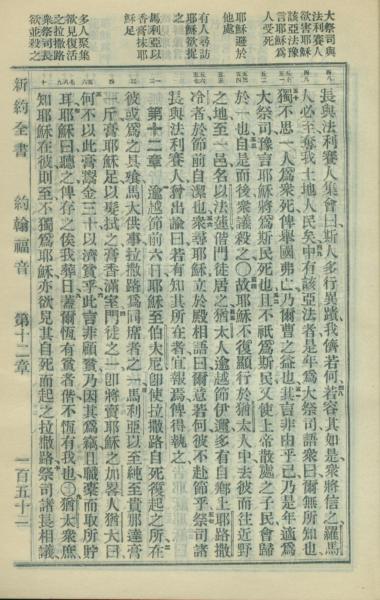 大祭司與
法利賽人
欲害耶穌
該亞法豫
言耶穌爲
人受死
耶穌避於
他處
有人尋訪
耶穌欲捉
之
馬利亞以
香膏抹耶
穌足
多人聚集
欲見復活
之拉撒路
衆祭司長
欲並殺之
長與法利賽人集會曰斯人多行異蹟我儕若何若容其如是衆將信之羅馬
人必至奪我土地人民矣中有該亞法者是年爲大祭司語衆曰爾無所知也
獨不思一人爲衆死俾舉國弗亡乃爾曹之益也其言非由乎己乃是年適爲
大祭司豫言耶穌將爲斯民死也且不祇爲斯民又使上帝散處之子民會歸
於一也自是而後衆議殺之○故耶穌不復顯行於猶太人中去彼而往近野
之地至一邑名以法蓮偕門徒居之猶太人逾越節伊邇多有自鄉上耶路撒
冷者於節前自潔也衆尋耶穌立於殿相語曰爾意若何彼不赴節乎祭司諸
長與法利賽人曾出諭曰若有知其所在者宜報焉俾得執之
第十二章 逾越節前六日耶穌至伯大尼卽使拉撒路自死復起之所在
彼或爲之具飧馬大供事拉撒路爲同席者之一馬利亞以至純至貴那達膏
一斤膏耶穌足以髮拭之膏香滿室門徒之一卽將賣耶穌之加畧人猶大曰
何不以此膏鬻金三十以濟貧乎此言非顧貧乃因其爲竊且職橐而取所貯
耳耶穌曰聽之俾存之俟我葬日蓋爾恆有貧者偕不恆有我也○猶太衆庶
知耶穌在彼則至不獨爲耶穌亦欲見其自死而起之拉撒路祭司諸長相議
新約全書 約翰福音 第十二章 一百五十二